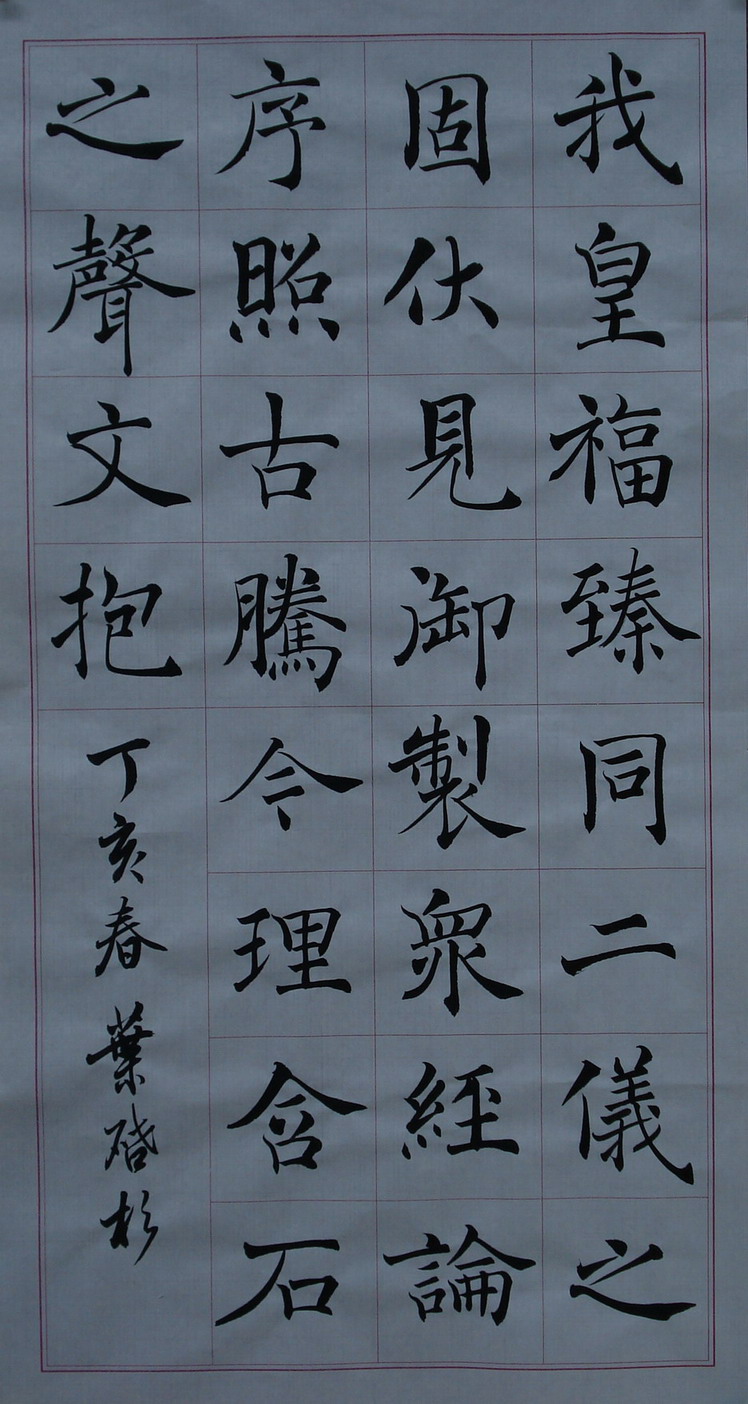 我皇福臻同二儀之
固伏見御製衆經論
序照古騰今理含石
之聲文抱
丁亥春 葉 杉